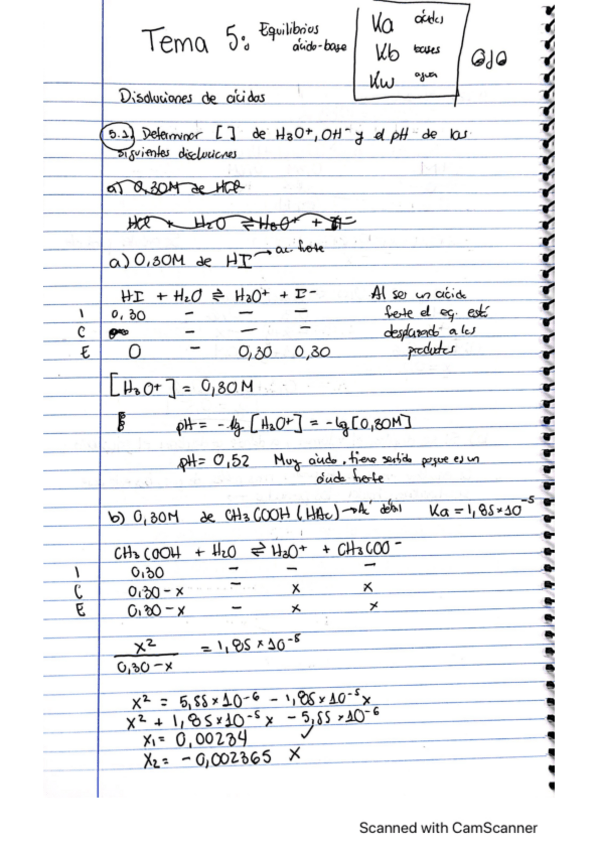 Tema 5: Equilibrios ácido-base
Ka ácidos
Kb bases
Kw agua
Disoluciones de ácidos
5.1. Determinar [ ] de H3O+, OH- y el pH de las
siguientes disoluciones
a) 0,30M de HCl
HCl + H2O ⇌ H3O+ +
a) 0,30M de HI → ac. fuerte
HI + H2O ⇌ H3O+ + I-
I 0,30 - - -
C - - -
E 0 - 0,30 0,30
Al ser un ácido
fuerte el eq. está
desplazado a los
productos
[H3O+] = 0,30M
pH = -lg [H3O+] = -lg [0,30M]
pH = 0,52 Muy ácido, tiene sentido porque es un
ácido fuerte
b) 0,30M de CH3COOH (HAc) → Ac débil Ka = 1,85×10-5
CH3COOH + H2O ⇌ H3O+ + CH3COO-
I 0,30 - - -
C 0,30-x - x x
E 0,30-x - x x
x2 / 0,30-x = 1,85×10-5
x2 = 5,55×10-6 - 1,85×10-5x
x2 + 1,85×10-5x - 5,55×10-6
x1 = 0,00234 ✓
x2 = -0,002365 X
Scanned with CamScanner